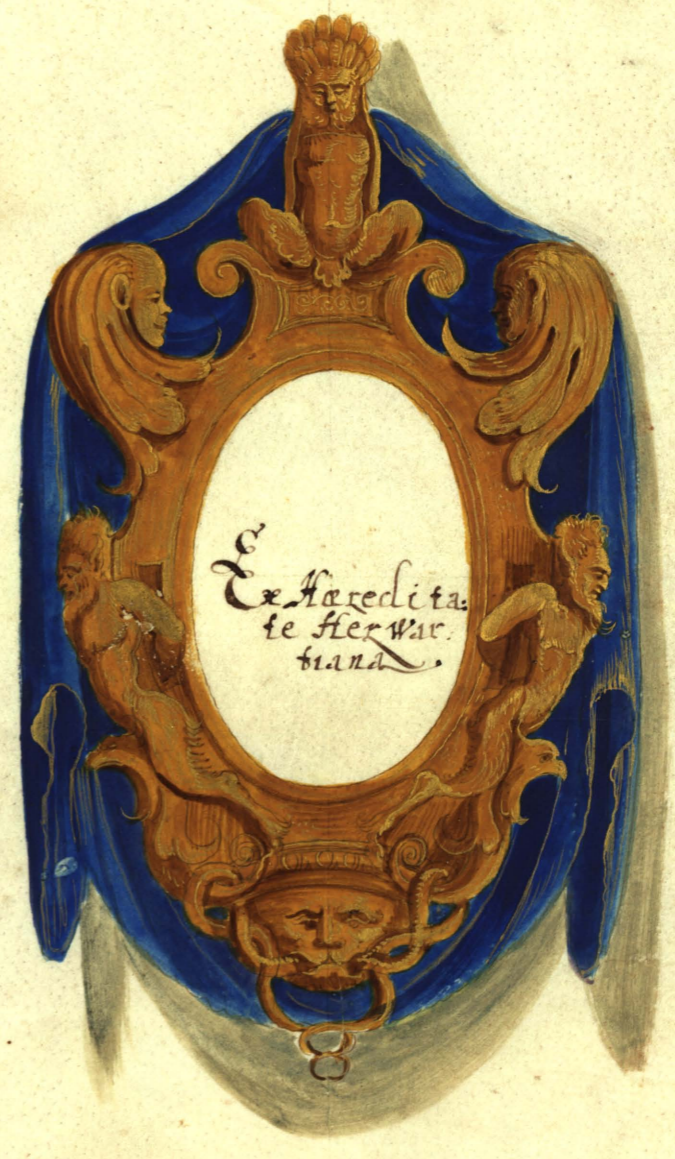 Ex Hæredita:
te Herwar:
tiana.